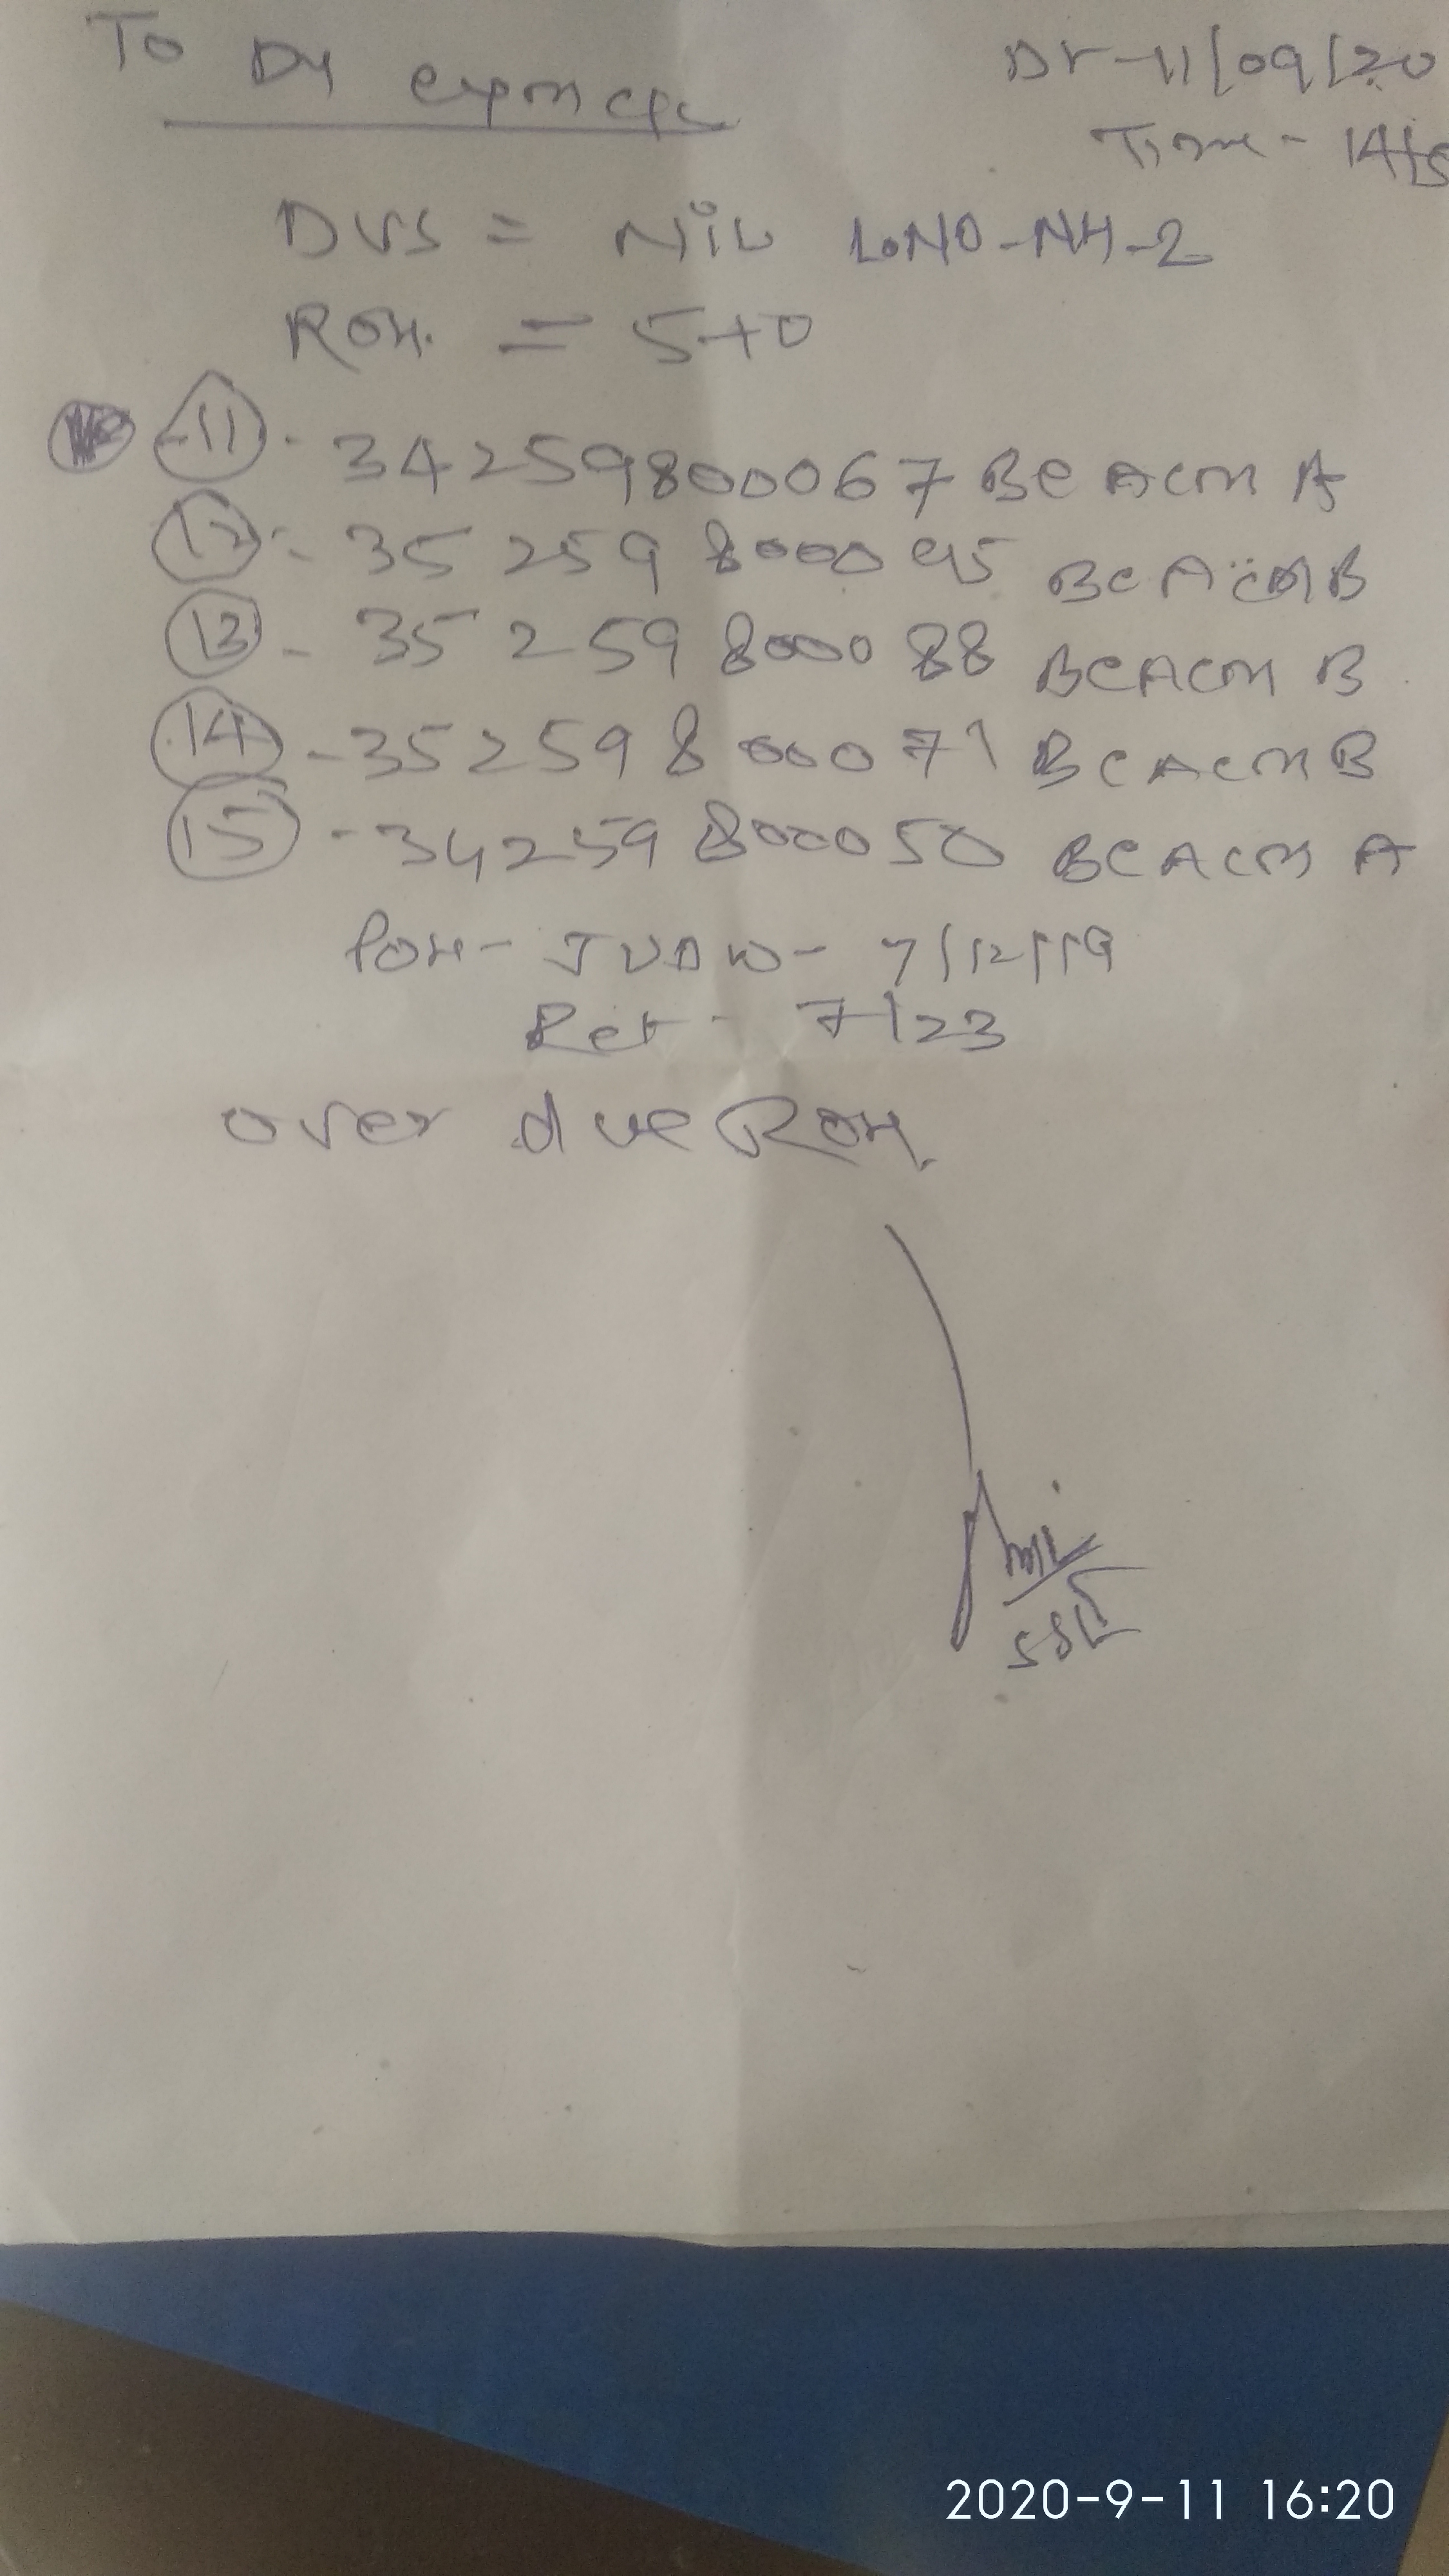 To Dy
Dt-11/09/20
Time - 14
DVS = NiL L.NO-NH-2
ROH. = 5+0
11 - 34259800067 BCACM A
12 - 35259800095 BCACMB
13 - 35259800088 BCACM B
14 - 35259800071 BCACMB
15 - 34259800050 BCACM A
POH- JUDW- 7/12/19
Ret - 7/23
over due ROH.
SSE
2020-9-11 16:20